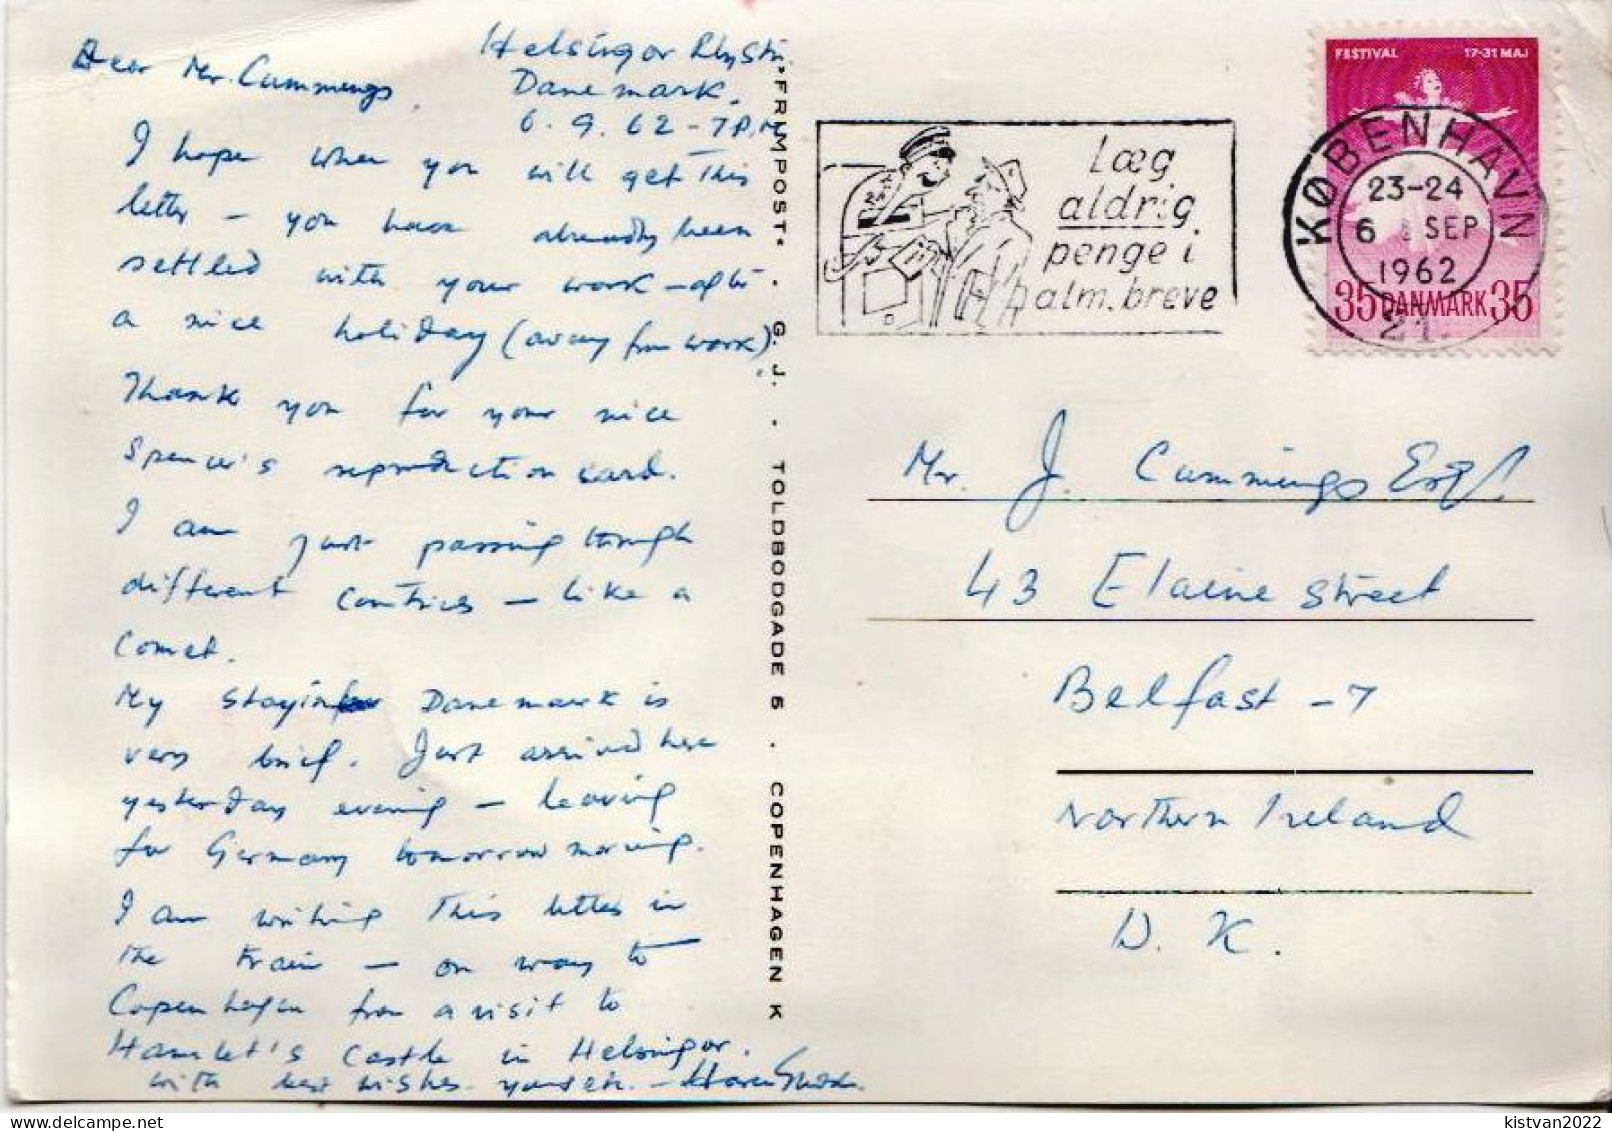 Dear Mr. Cummings,
Helsingor
Danemark.
6. 9. 62 - 7 P.M
I hope when you will get this
letter - you have already been
settled with your work - after
a nice holiday (away from work).
Thank you for your nice
Spencer's reproduction card.
I am just passing though
different contries - like a
Comet.
My stay in Danemark is
very brief. Just arrived here
yesterday evening - leaving
for Germany tomorrow morning.
I am writing this letter in
the train - on way to
Copenhagen from a visit to
Hamlet's Castle in Helsingor.
with best wishes.
*FRIMPOST* . G. J. . TOLDBODGADE 5 . COPENHAGEN K
Læg
aldrig
penge i
alm. breve
FESTIVAL 17-31 MAJ
KØBENHAVN
23-24
6 SEP
1962
21.
35 DANMARK 35
Mr. J. Cummings Esq.
43 Elaine Street
Belfast - 7
Northern Ireland
U. K.
kistvan2022